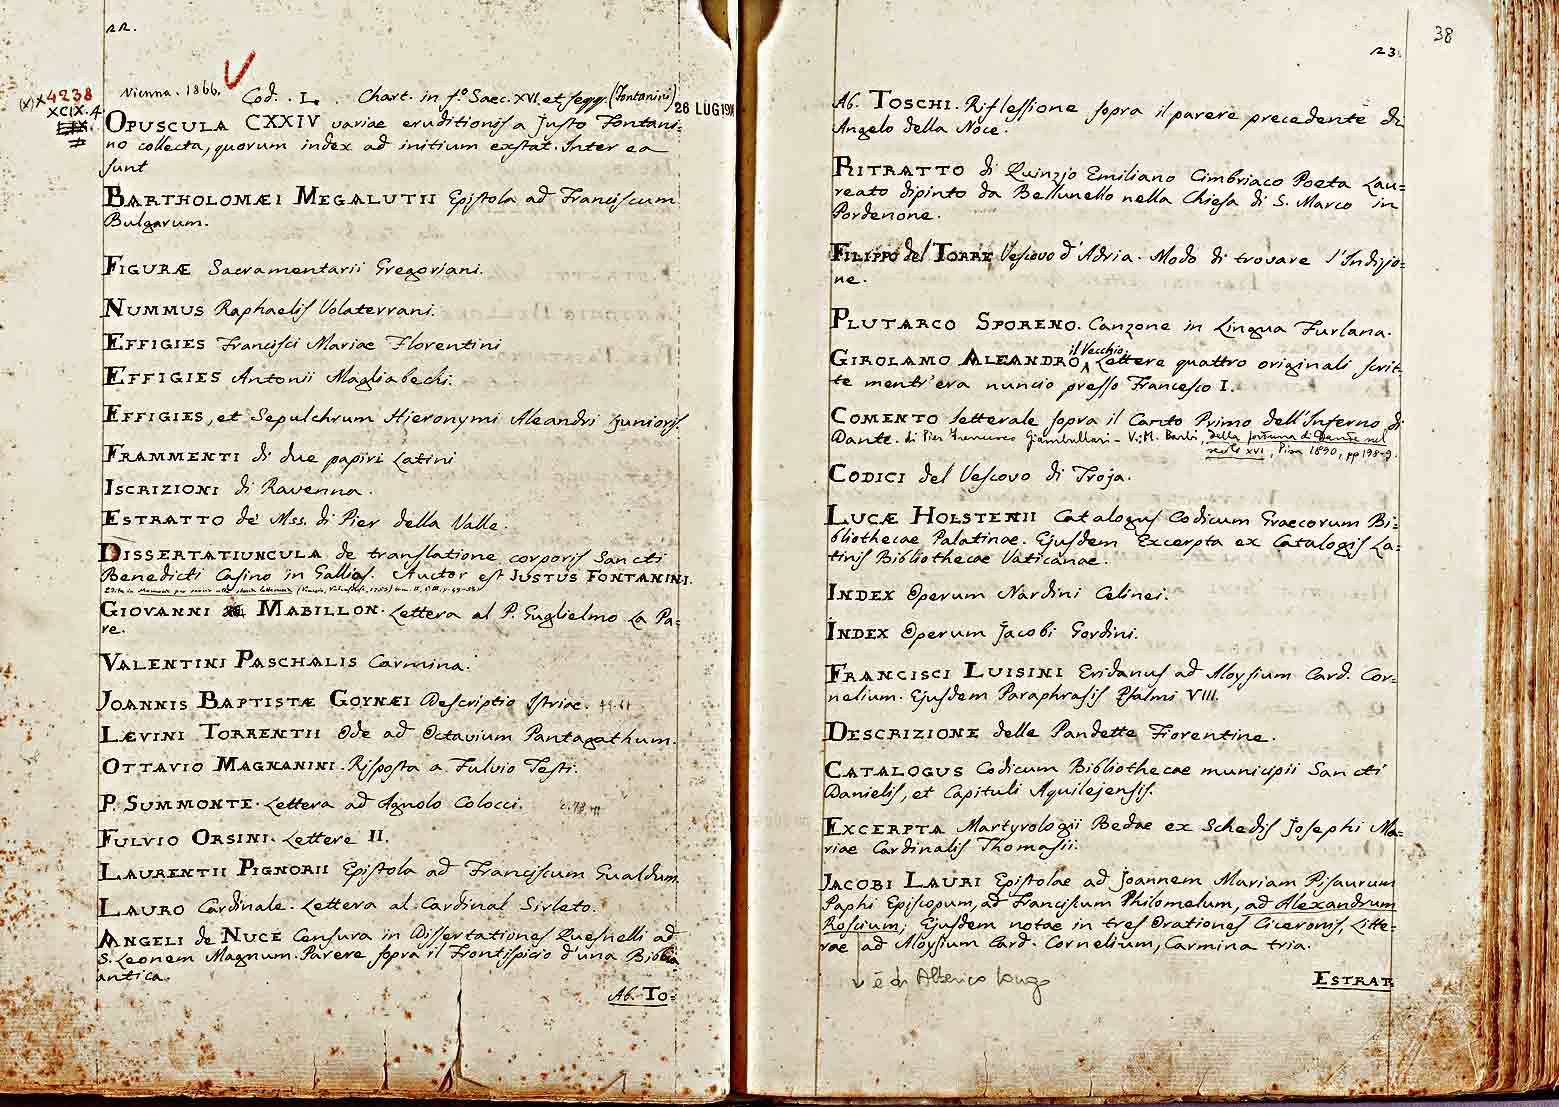 22.
Vienna. 1866. Cod. L. Chart. in f.º Saec. XVI. et seqq. (Fontanini)
26 LUG
(x) x 4238
XCIX. 4
OPUSCULA CXXIV variae eruditionis a Justo Fontani=
no collecta, quorum index ad initium exstat. Inter ea
sunt
BARTHOLOMÆI MEGALUTII Epistola ad Franciscum
Bulgarum.
FIGURÆ Sacramentarii Gregoriani.
NUMMUS Raphaelis Volaterrani.
EFFIGIES Francisci Mariae Florentini
EFFIGIES Antonii Magliabechi.
EFFIGIES, et Sepulchrum Hieronymi Aleandri Junioris.
FRAMMENTI di due papiri Latini
ISCRIZIONI di Ravenna.
ESTRATTO de' Mss. di Pier della Valle.
DISSERTATIUNCULA de translatione corporis Sancti
Benedicti Casino in Gallias. Auctor est JUSTUS FONTANINI.
GIOVANNI MABILLON. Lettera al P. Guglielmo La Pa=
re.
VALENTINI PASCHALIS Carmina.
JOANNIS BAPTISTÆ GOYNÆI Descriptio Istriae.
LÆVINI TORRENTII Ode ad Octavium Pantagathum.
OTTAVIO MAGNANINI. Risposta a Fulvio Testi.
P. SUMMONTE. Lettera ad Agnolo Colocci.
FULVIO ORSINI. Lettere II.
LAURENTII PIGNORII Epistola ad Franciscum Gualdum
LAURO Cardinale. Lettera al Cardinal Sirleto.
ANGELI de NUCE Censura in Dissertationes Quesnelli ad
S. Leonem Magnum. Parere sopra il Frontispicio d'una Bibbia
antica.
Ab. To=
23.
38
Ab. TOSCHI. Riflessione sopra il parere precedente di
Angelo della Noce.
RITRATTO di Quinzio Emiliano Cimbriaco Poeta Lau=
reato dipinto da Bellunello nella Chiesa di S. Marco in
Pordenone.
FILIPPO del TORRE Vescovo d'Adria. Modo di trovare l'Indizio=
ne.
PLUTARCO SPORENO. Canzone in Lingua Furlana.
il Vecchio.
GIROLAMO ALEANDRO Lettere quattro originali scrit=
te mentr'era nuncio presso Francesco I.
COMENTO letterale sopra il Canto Primo dell'Inferno di
Dante. di Pier Francesco Giambullari - V. M. Barbi, della fortuna di Dante nel
secolo XVI, Pisa 1890, pp 198-9.
CODICI del Vescovo di Troja.
LUCÆ HOLSTENII Catalogus Codicum Graecorum Bi=
bliothecae Palatinae. Ejusdem Excerpta ex Catalogis La=
tinis Bibliothecae Vaticanae.
INDEX Operum Nardini Celinei.
INDEX Operum Jacobi Gordini.
FRANCISCI LUISINI Eridanus ad Aloysium Card. Cor=
nelium. Ejusdem Paraphrasis Psalmi VIII.
DESCRIZIONE delle Pandette Fiorentine.
CATALOGUS Codicum Bibliothecae municipii Sancti
Danielis, et Capituli Aquilejensis.
EXCERPTA Martyrologii Bedae ex Schedis Josephi Ma=
riae Cardinalis Thomasii.
JACOBI LAURI Epistolae ad Joannem Mariam Pisaurum
Paphi Episcopum, ad Franciscum Philomelum, ad Alexandrum
Roscium; Ejusdem notae in tres Orationes Ciceronis, Litte=
rae ad Aloysium Card. Cornelium, Carmina tria.
è di Alberico Longo
ESTRAT